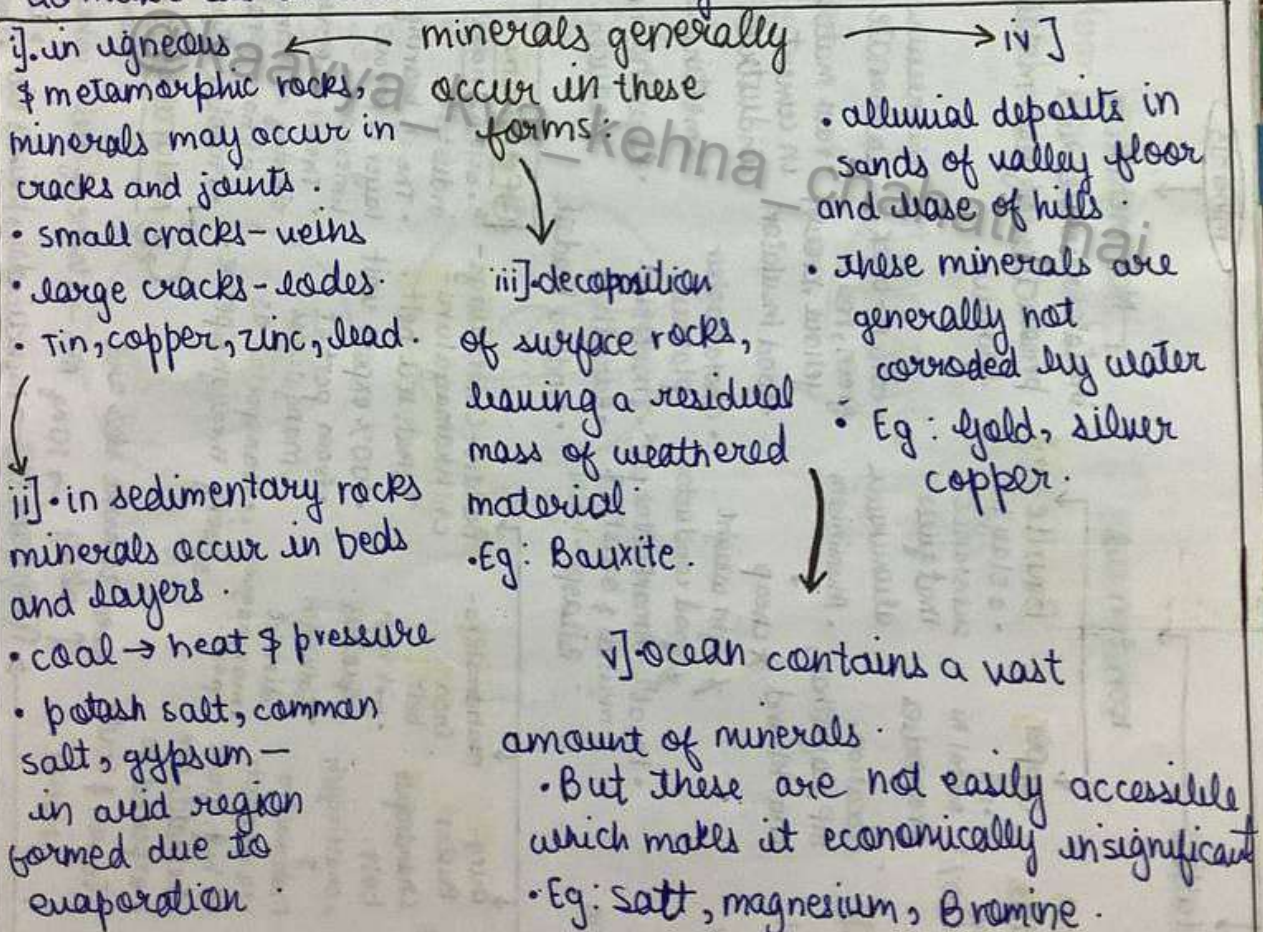 minerals generally
occur in these
forms:
i]. in igneous
& metamorphic rocks,
minerals may occur in
cracks and joints.
• small cracks - veins
• large cracks - lodes.
• Tin, copper, zinc, lead.
ii]• in sedimentary rocks
minerals occur in beds
and layers.
• coal → heat & pressure
• potash salt, common
salt, gypsum —
in arid region
formed due to
evaporation.
iii]•decoposition
of surface rocks,
leaving a residual
mass of weathered
material.
•Eg: Bauxite.
iv]
• alluvial deposits in
sands of valley floor
and base of hills.
• these minerals are
generally not
corroded by water
• Eg: Gold, silver
copper.
v]•ocean contains a vast
amount of minerals.
•But these are not easily accessible
which makes it economically insignificant
•Eg: Salt, magnesium, Bromine.